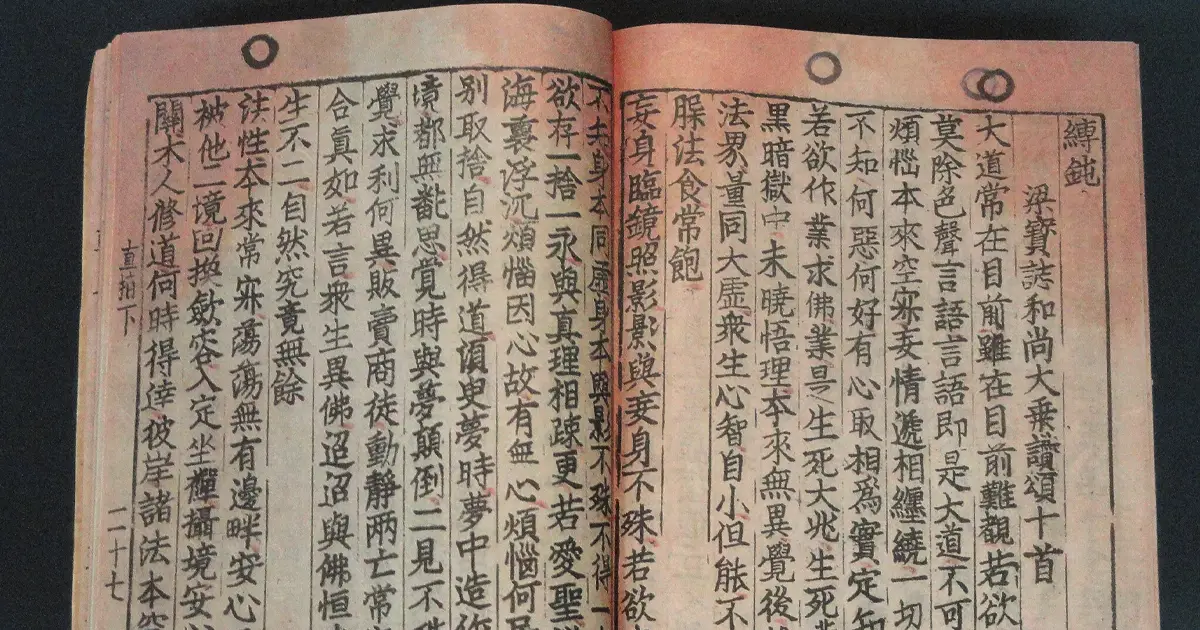 縛鈍
梁寶誌和尚大乗讃頌十首
大道常在目前雖在目前難覩若欲
莫除色聲言語言語即是大道不可
煩惱本來空寂妄情遞相纏繞一切
不知何惡何好有心取相爲實定知
若欲作業求佛業是生死大兆生死業
黒暗獄中未曉悟理本來無異覺後
法界量同大虛衆生心智自小但能不
臊法食常飽
妄身臨鏡照影影與妄身不殊若欲
不去身本同虛身本與影不殊不得一
欲存一捨一永與真理相疎更若愛聖
海裏浮沉煩惱因心故有無心煩惱何
別取捨自然得道湏臾夢時夢中造作
境都無飜思覺時與夢顛倒二見不殊
覺求利何異販賣商徒動靜兩亡常
合真如若言衆生異佛迢迢與佛恒
生不二自然究竟無餘
法性本來常寂蕩蕩無有邊畔安心
被他二境回換歛容入定坐禪攝境安
關木人修道何時得達彼岸諸法本空
直指下
二十七